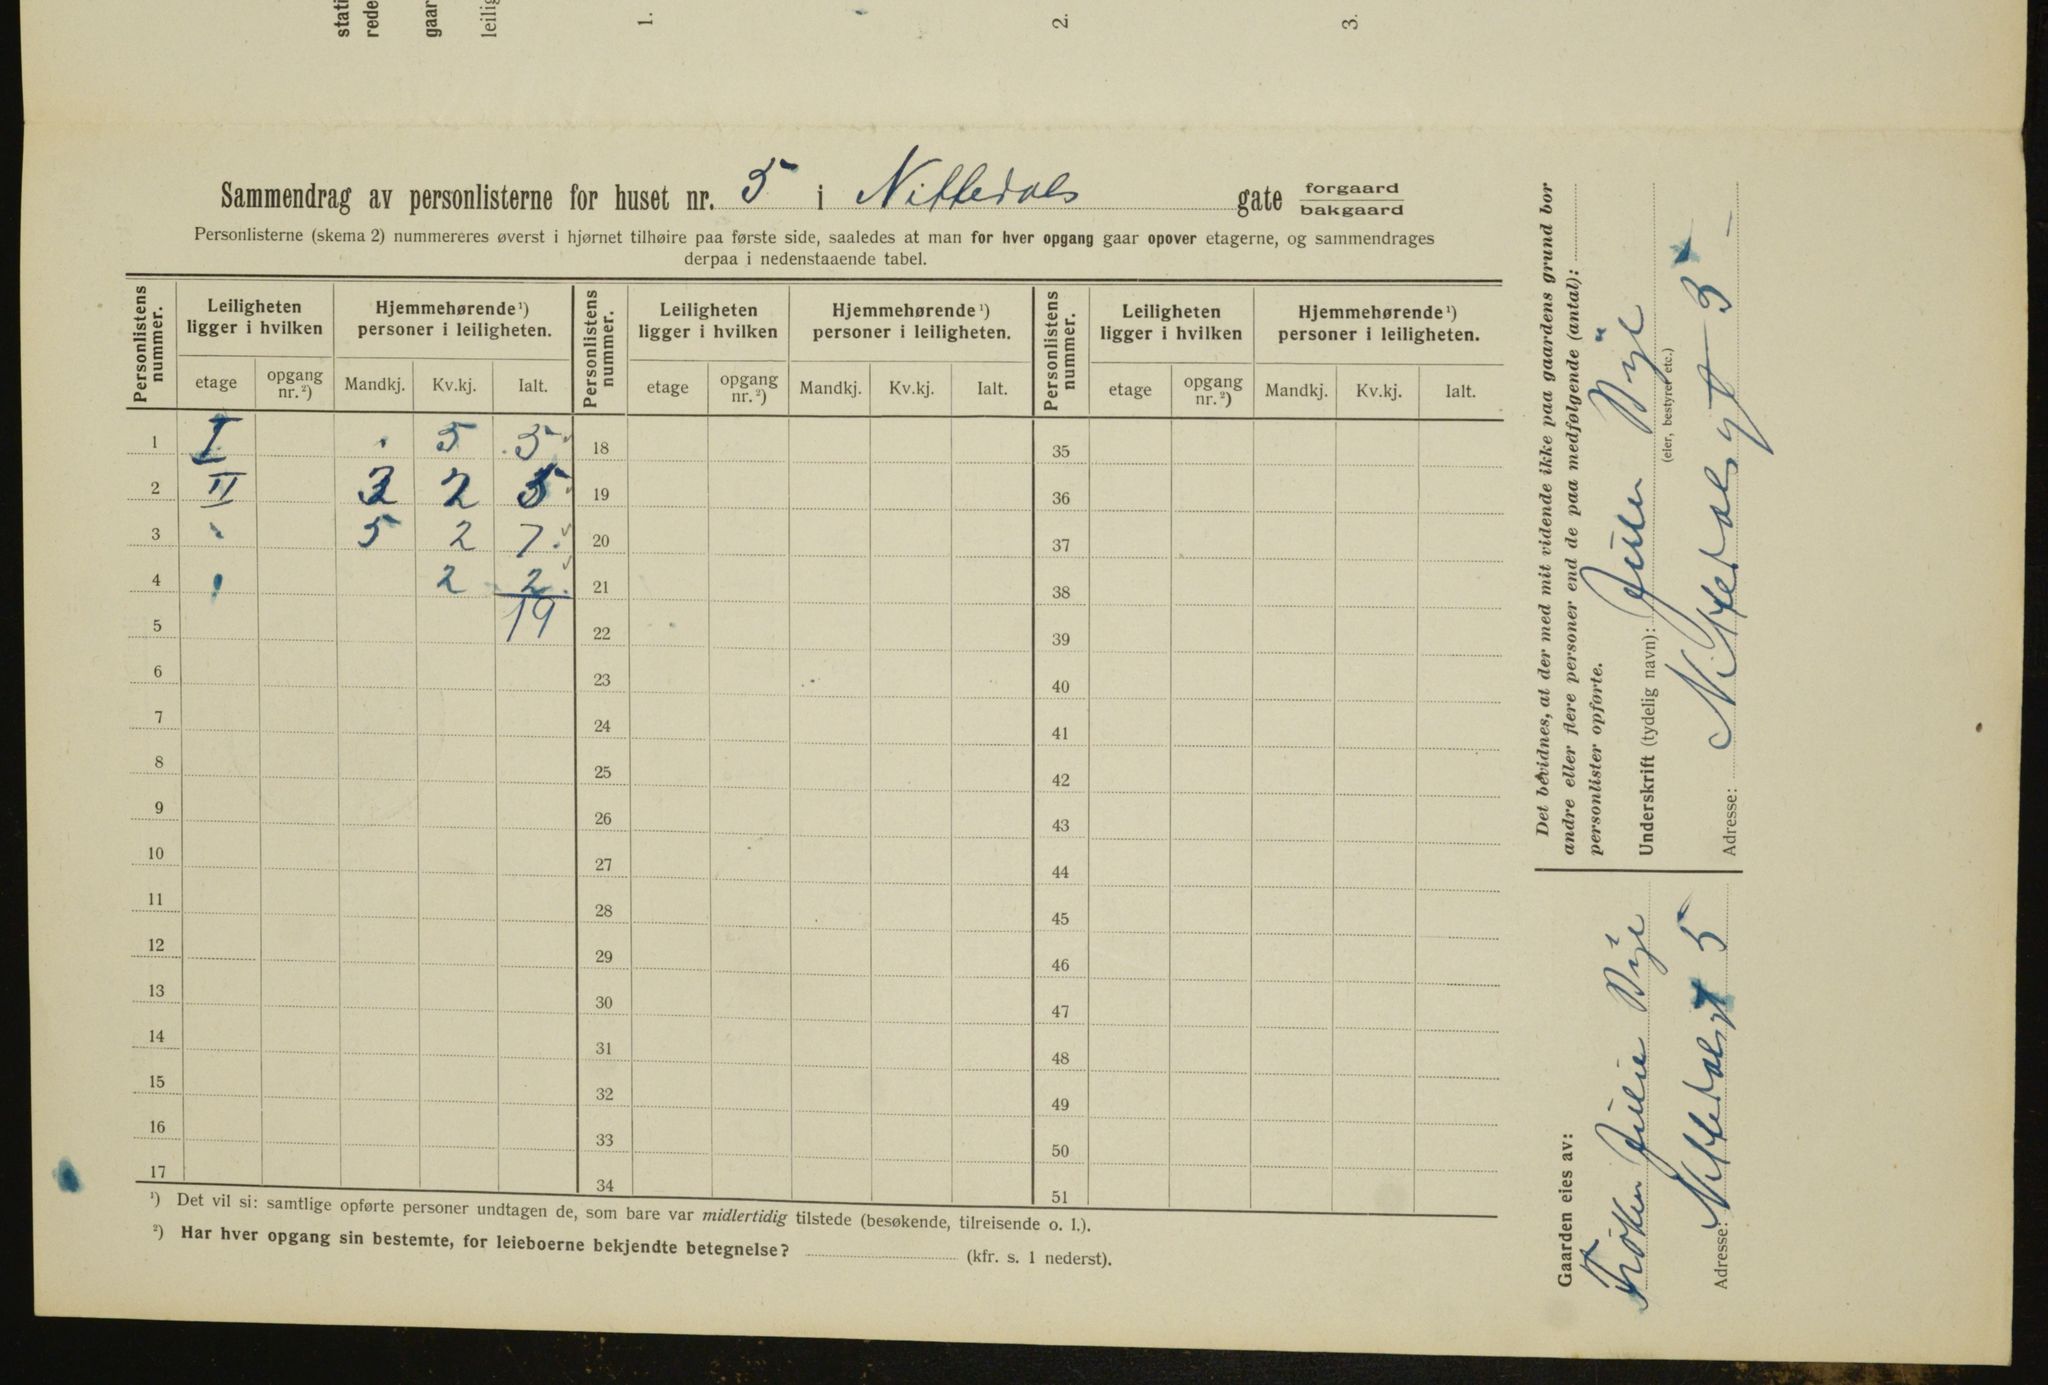 stati
rede
gaar
leilig
1.
2.
3.
Sammendrag av personlisterne for huset nr. 5 i Nittedals gate forgaard
bakgaard
Personlisterne (skema 2) nummereres øverst i hjørnet tilhøire paa første side, saaledes at man for hver opgang gaar opover etagerne, og sammendrages
derpaa i nedenstaaende tabel.
Personlistens nummer. Leiligheten ligger i hvilken Hjemmehørende¹) personer i leiligheten. Personlistens nummer. Leiligheten ligger i hvilken Hjemmehørende¹) personer i leiligheten. Personlistens nummer. Leiligheten ligger i hvilken Hjemmehørende¹) personer i leiligheten.
etage opgang nr.²) Mandkj. Kv.kj. Ialt. etage opgang nr.²) Mandkj. Kv.kj. Ialt. etage opgang nr.²) Mandkj. Kv.kj. Ialt.
1 I . 5 5 18 35
2 II 3 2 5 19 36
3 " 5 2 7 20 37
4 " 2 2 21 38
5 19 22 39
6 23 40
7 24 41
8 25 42
9 26 43
10 27 44
11 28 45
12 29 46
13 30 47
14 31 48
15 32 49
16 33 50
17 34 51
¹) Det vil si: samtlige opførte personer undtagen de, som bare var midlertidig tilstede (besøkende, tilreisende o. l.).
²) Har hver opgang sin bestemte, for leieboerne bekjendte betegnelse? (kfr. s. 1 nederst).
Det bevidnes, at der med mit vidende ikke paa gaardens grund bor
andre eller flere personer end de paa medfølgende (antal):
personlister opførte.
Underskrift (tydelig navn):
(eier, bestyrer etc.)
Adresse: Nittedalsgt 5
Gaarden eies av:
Frøken Julie
Adresse: Nittedalsgt 5